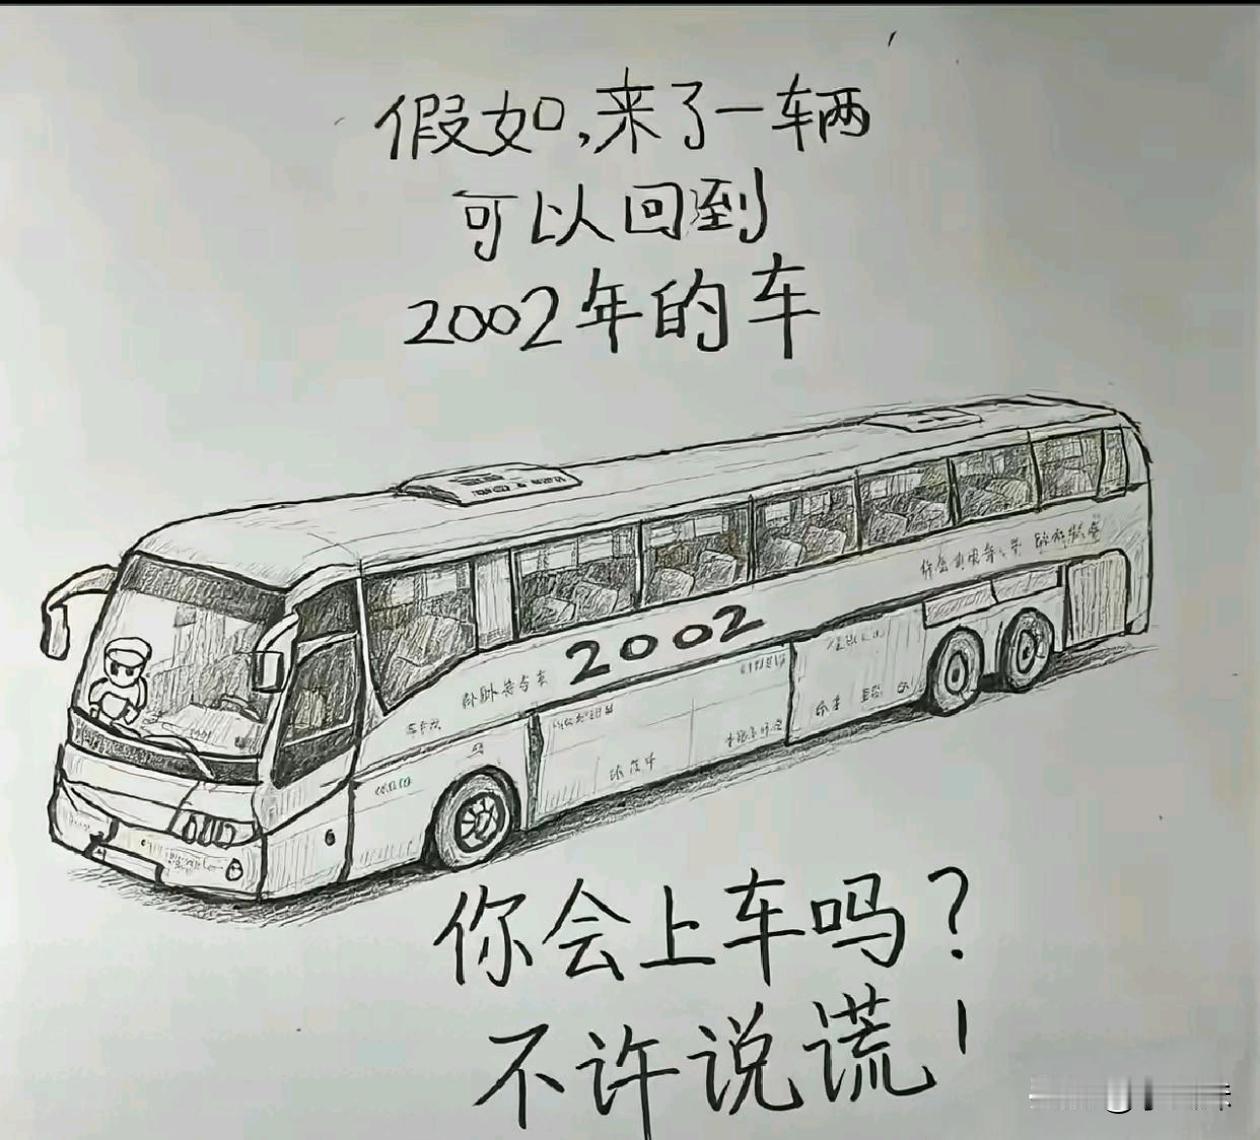 假如,来了一辆
可以回到
2002年的车
2002
你会上车吗?
不许说谎!